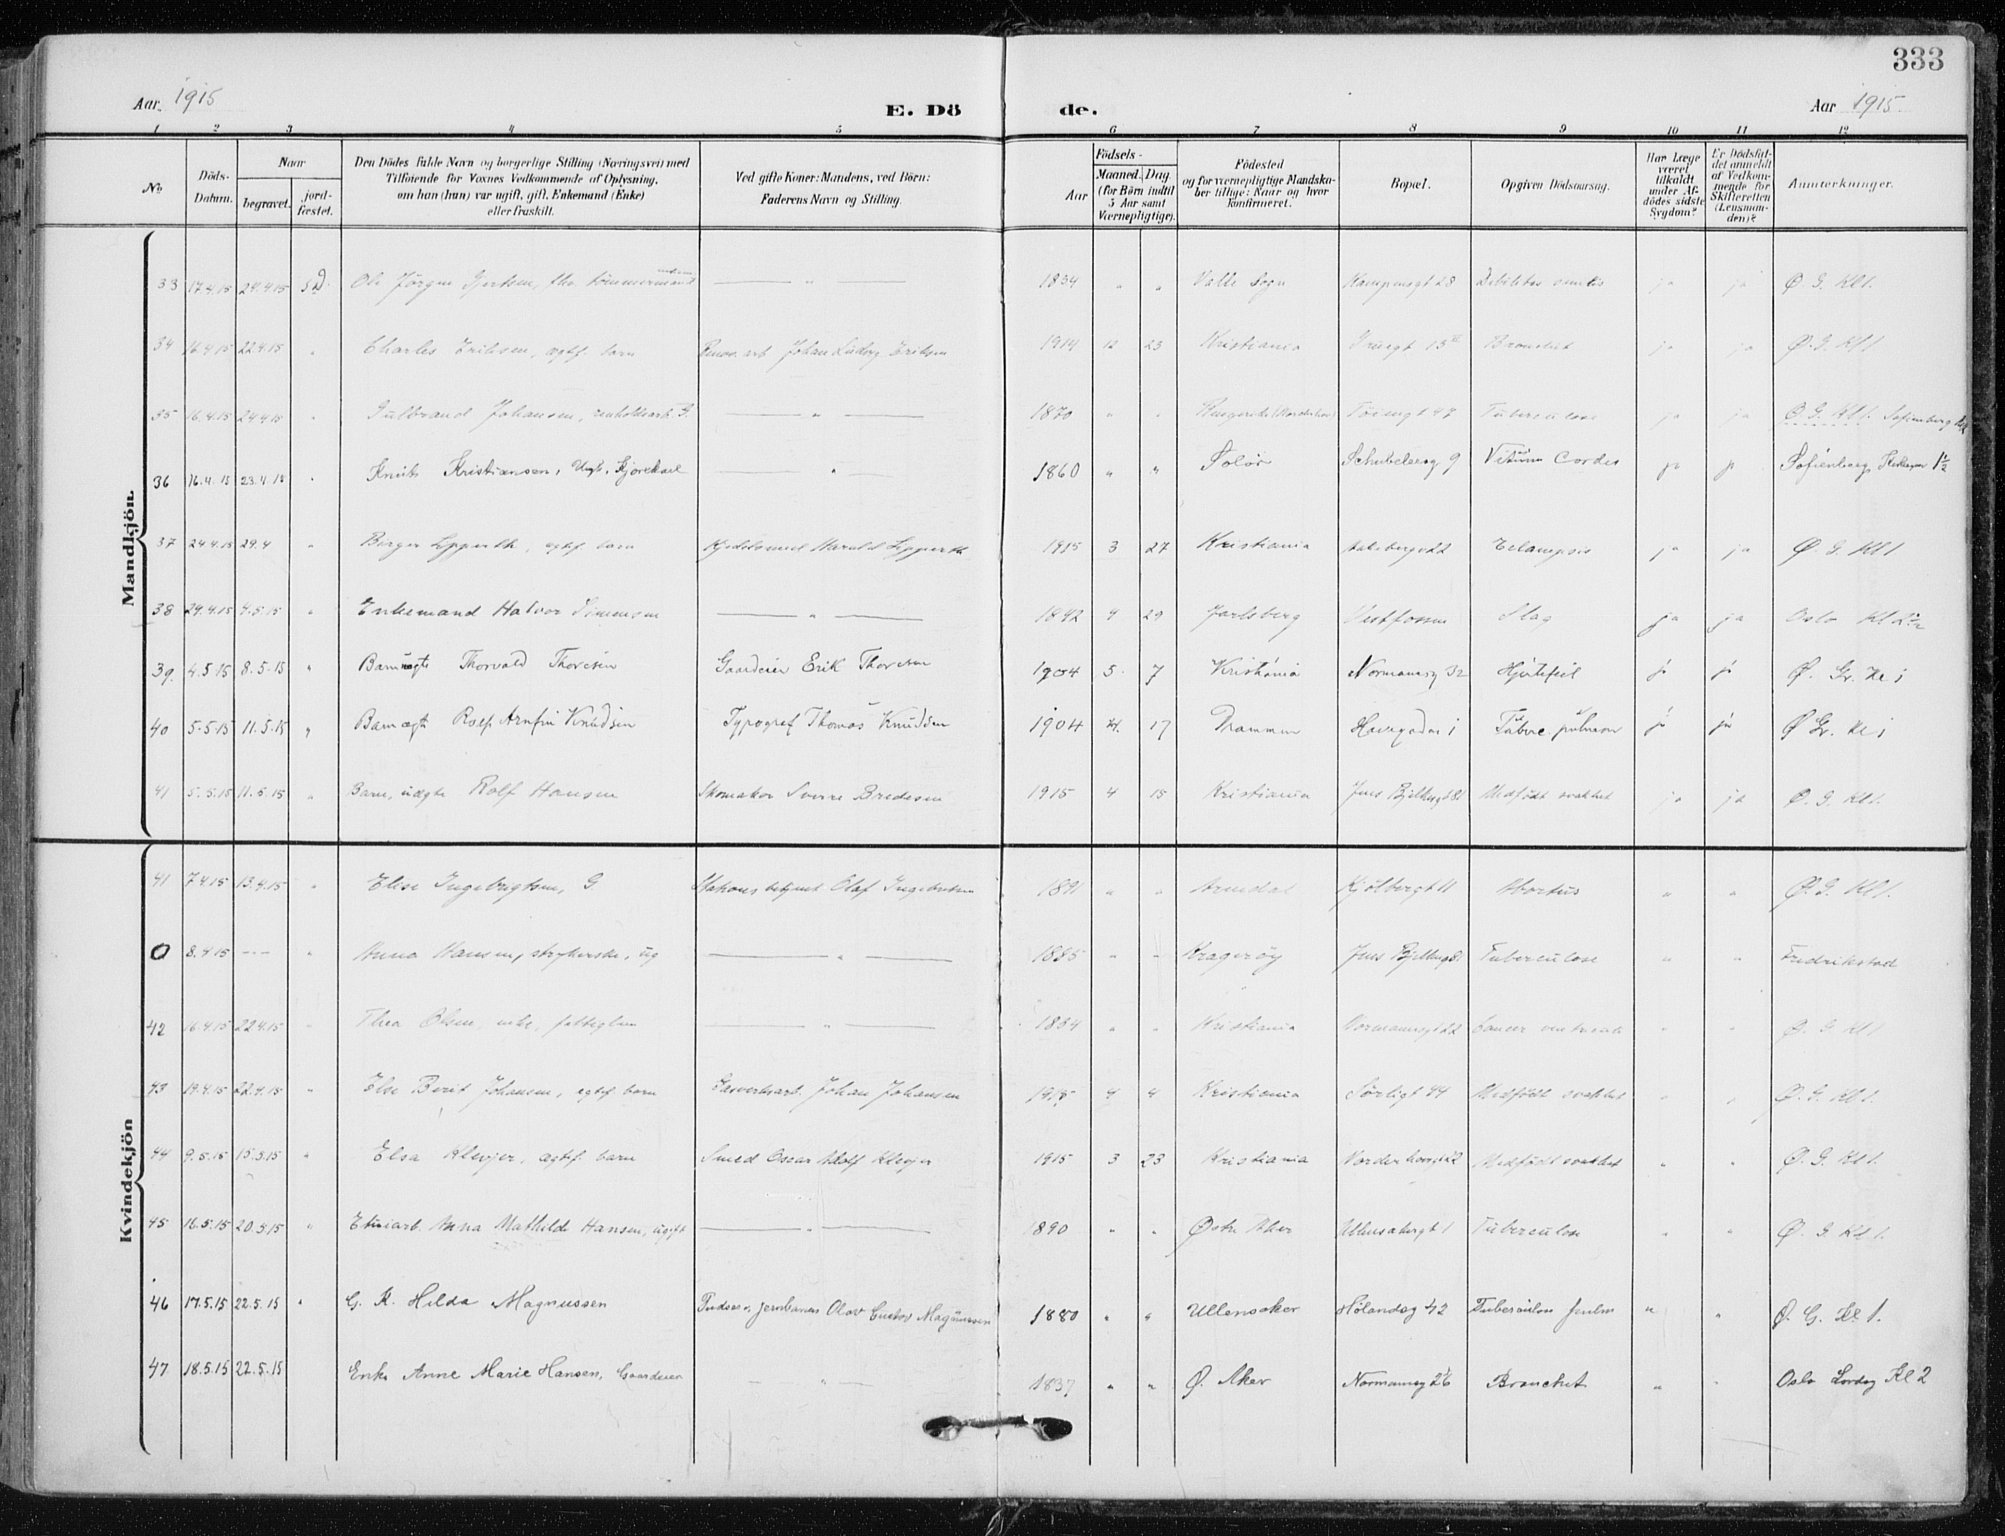 333
Aar 1915 E. Dö de. Aar 1915.
1 2 3 4 5 6 7 8 9 10 11 12
No Döds-Datum. Naar begravet. jord-fæstet. Den Dödes fulde Navn og borgerlige Stilling (Næringsvei) med Tilföiende for Voxnes Vedkommende af Oplysning, om han (hun) var ugift, gift, Enkemand (Enke) eller fraskilt. Ved gifte Koner: Mandens, ved Börn: Faderens Navn og Stilling. Aar Födsels- Maaned. Dag. (for Börn indtil 5 Aar samt Værnepligtige). Födested og for værnepligtige Mandska-ber tillige: Naar og hvor konfirmeret. Bopæl. Opgiven Dödsaarsag. Har Læge været tilkaldt under Af-dödes sidste Sygdom? Er Dödsfal-det anmeldt af Vedkom-mende for Skifteretten (Lensman-den)? Anmærkninger.
Mandkjön.
33 17.4.15 24.4.15 Ole Jörgen Gjertsen, fhv. tömmermand — " — 1834 " " Valle Sogn Kampensgt 28 Debilitas senilis ja ja Ø. G. Kl 1.
34 16.4.15 22.4.15 " Charles Eriksen, ægtef. barn Renov. arb Johan Ludvig Eriksen 1914 12 23 Kristiania ja ja Ø. G. Kl 1
35 16.4.15 24.4.15 " Gulbrand Johansen, renholdsarb. G — " — 1870 " " Töiengt 47 Tuberculose ja ja Ø. G. Kl 1. Sofienberg
36 16.4.15 23.4.15 " Knut Kristiansen, Ugt. Kjörekarl — " — 1860 " " Solör Schubelersg 9 Vitium Cordis ja ja Sofienberg 1 1/2
37 24.4.15 29.4 " Birger Lipperth, ægtef. barn Harald Lipperth 1915 3 27 Kristiania Eclampsis ja ja Ø G. Kl 1
38 29.4.15 4.5.15 " Enkemand Halvor Simensen — " — 1842 4 29 Jarlsberg Vestfossen Slag ja ja Oslo Kl 2 1/2
39. 4.5.15 8.5.15 " Barn ægte Thorvald Thoresen Gaardeier Erik Thoresen 1904 5. 7 Kristiania Normannsg 32 Hjertefeil ja ja Ø. Gr. Kl 1
40 5.5.15 11.5.15 " Barn ægte Rolf Arnfin Knudsen Typograf Thomas Knudsen 1904 17 Drammen Havegaden 1 ja ja Ø Gr. Kl 1
41 5.5.15 11.5.15 " Barn, uægte Rolf Hansen Skomaker Sverre Bredesen 1915 4 15 Kristiania Jens Bjelkesgt 81 Medfödt svakhet ja ja Ø. G. Kl 1.
Kvindekjön
41 7.4.15 13.4.15 " Elise Ingebrigtsen, G. Stationsbetjent Olaf Ingebretsen 1891 " " Arendal Kjölberggt 11 Abortus " " Ø. G. Kl 1.
0 8.4.15 --- " Anna Hansen, strykerske, ug — " — 1885 " " Kragerøy Jens Bjelkesg 81 Tuberculose " " Fredrikstad
42 16.4.15 22.4.15 " Thea Olsen, enke, fattiglem — " — 1834 " " Kristiania Normannsgt 22 Cancer ventriculi " " Ø. G. Kl 1
43 19.4.15 22.4.15 " Else Berit Johansen, ægtef. barn Gasverksarb. Johan Johansen 1915 4 4 Kristiania Sörligt 44 Medfödt svakhet " " Ø. G. Kl 1.
44 9.5.15 15.5.15 " Elsa Klevjer, ægtef. barn Smed Oscar Adolf Klevjer 1915 3 23 Kristiania Medfödt svakhet " " Ø. G. Kl 1.
45 16.5.15 20.5.15 " Etuiarb Anna Mathilde Hansen, ugift — " — 1890 " " Østre Aker Ullensakergt 1 Tuberculose " " Ø. G. Kl 1.
46 17.5.15 22.5.15 " G. K. Hilda Magnussen Pudser v. jernbanen Olav Gustav Magnussen 1880 " " Ullensaker Hölandsg 42 Tuberculose pulm " " Ø. G. Kl 1.
47 18.5.15 22.5.15 Enke Anne Marie Hansen, Gaardeier — " — 1837 " " Ø. Aker Normannsg Bronchit " " Oslo Lørdag Kl 2